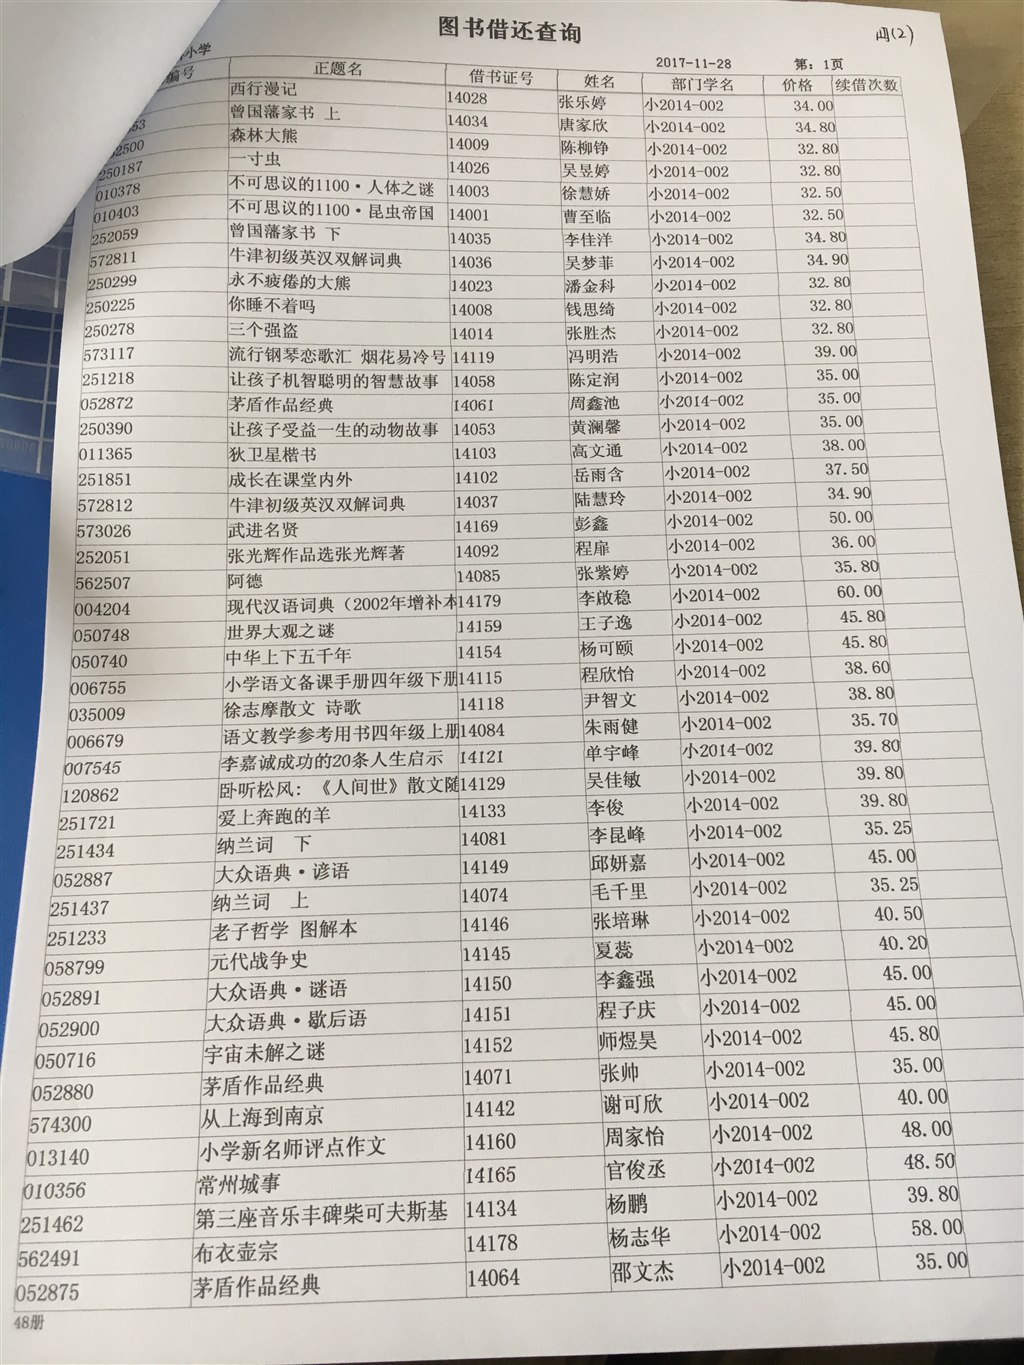 图书借还查询
四(2)
小学
2017-11-28 第: 1页
编号 正题名 借书证号 姓名 部门学名 价格 续借次数
西行漫记 14028 张乐婷 小2014-002 34.00
53 曾国藩家书 上 14034 唐家欣 小2014-002 34.80
2500 森林大熊 14009 陈柳铮 小2014-002 32.80
250187 一寸虫 14026 吴昱婷 小2014-002 32.80
010378 不可思议的1100·人体之谜 14003 徐慧娇 小2014-002 32.50
010403 不可思议的1100·昆虫帝国 14001 曹至临 小2014-002 32.50
252059 曾国藩家书 下 14035 李佳洋 小2014-002 34.80
572811 牛津初级英汉双解词典 14036 吴梦菲 小2014-002 34.90
250299 永不疲倦的大熊 14023 潘金科 小2014-002 32.80
250225 你睡不着吗 14008 钱思绮 小2014-002 32.80
250278 三个强盗 14014 张胜杰 小2014-002 32.80
573117 流行钢琴恋歌汇 烟花易冷号 14119 冯明浩 小2014-002 39.00
251218 让孩子机智聪明的智慧故事 14058 陈定润 小2014-002 35.00
052872 茅盾作品经典 14061 周鑫池 小2014-002 35.00
250390 让孩子受益一生的动物故事 14053 黄澜馨 小2014-002 35.00
011365 狄卫星楷书 14103 高文通 小2014-002 38.00
251851 成长在课堂内外 14102 岳雨含 小2014-002 37.50
572812 牛津初级英汉双解词典 14037 陆慧玲 小2014-002 34.90
573026 武进名贤 14169 彭鑫 小2014-002 50.00
252051 张光辉作品选张光辉著 14092 程扉 小2014-002 36.00
562507 阿德 14085 张紫婷 小2014-002 35.80
004204 现代汉语词典（2002年增补本 14179 李啟稳 小2014-002 60.00
050748 世界大观之谜 14159 王子逸 小2014-002 45.80
050740 中华上下五千年 14154 杨可颐 小2014-002 45.80
006755 小学语文备课手册四年级下册 14115 程欣怡 小2014-002 38.60
035009 徐志摩散文 诗歌 14118 尹智文 小2014-002 38.80
006679 语文教学参考用书四年级上册 14084 朱雨健 小2014-002 35.70
007545 李嘉诚成功的20条人生启示 14121 单宇峰 小2014-002 39.80
120862 卧听松风: 《人间世》散文随 14129 吴佳敏 小2014-002 39.80
251721 爱上奔跑的羊 14133 李俊 小2014-002 39.80
251434 纳兰词 下 14081 李昆峰 小2014-002 35.25
052887 大众语典·谚语 14149 邱妍嘉 小2014-002 45.00
251437 纳兰词 上 14074 毛千里 小2014-002 35.25
251233 老子哲学 图解本 14146 张培琳 小2014-002 40.50
058799 元代战争史 14145 夏蕊 小2014-002 40.20
052891 大众语典·谜语 14150 李鑫强 小2014-002 45.00
052900 大众语典·歇后语 14151 程子庆 小2014-002 45.00
050716 宇宙未解之谜 14152 师煜昊 小2014-002 45.80
052880 茅盾作品经典 14071 张帅 小2014-002 35.00
574300 从上海到南京 14142 谢可欣 小2014-002 40.00
013140 小学新名师评点作文 14160 周家怡 小2014-002 48.00
010356 常州城事 14165 官俊丞 小2014-002 48.50
251462 第三座音乐丰碑柴可夫斯基 14134 杨鹏 小2014-002 39.80
562491 布衣壶宗 14178 杨志华 小2014-002 58.00
052875 茅盾作品经典 14064 邵文杰 小2014-002 35.00
48册